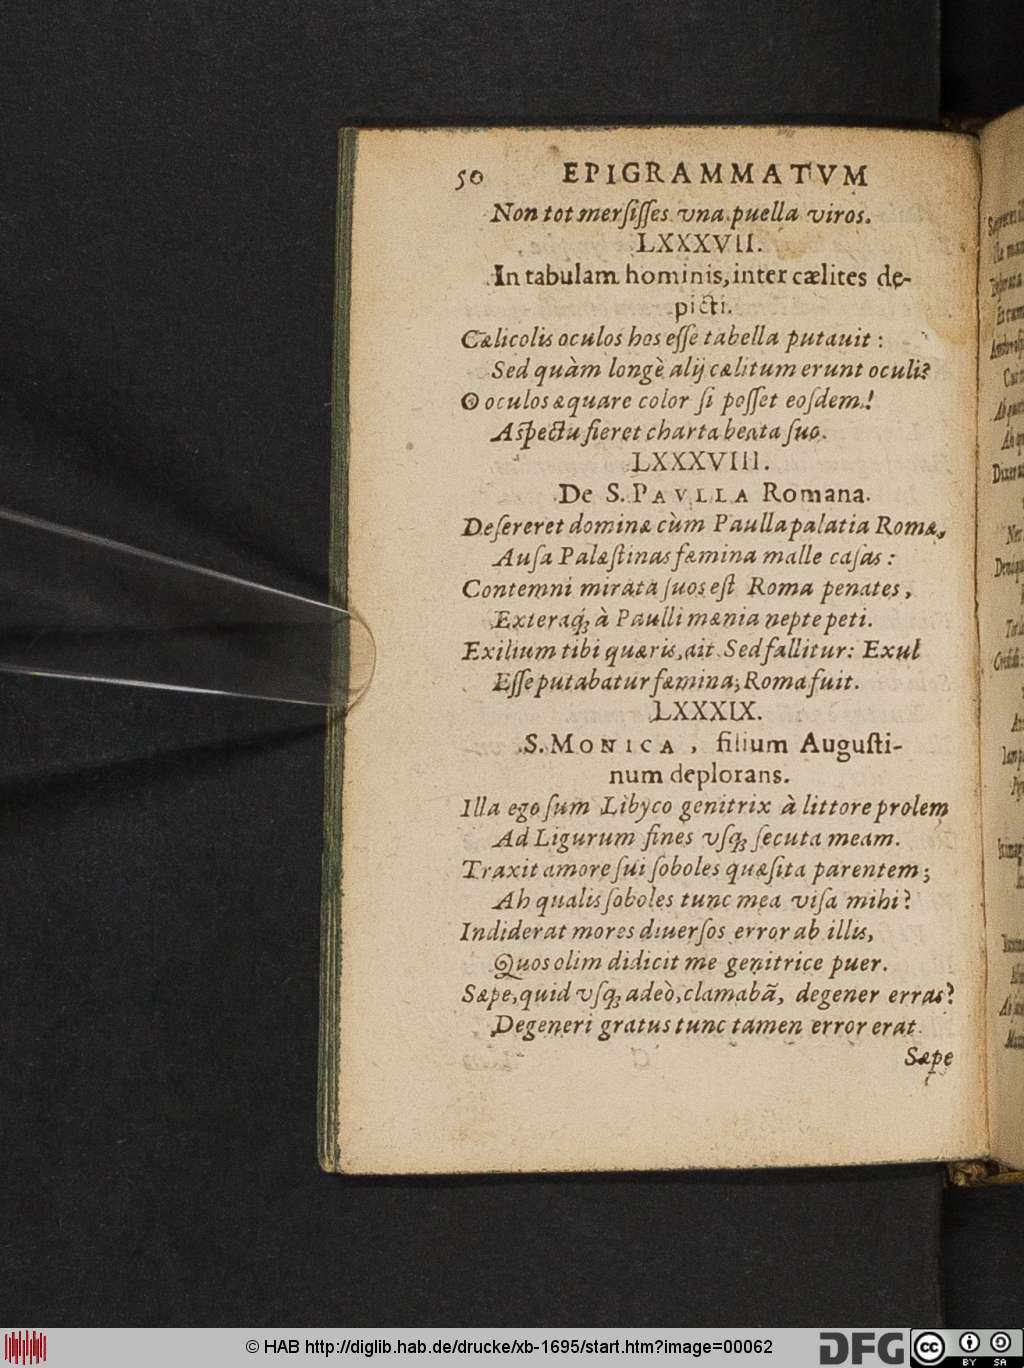 50 EPIGRAMMATVM
Non tot mersisses vna puella viros.
LXXXVII.
In tabulam hominis, inter cælites de-
picti.
Cælicolis oculos hos esse tabella putauit :
Sed quàm longè alij cælitum erunt oculi?
O oculos æquare color si posset eosdem!
Aspectu fieret charta beata suo.
LXXXVIII.
De S. PAVLLA Romana.
Desereret dominæ cùm Paulla palatia Romæ,
Ausa Palæstinas fæmina malle casas :
Contemni mirata suos est Roma penates,
Exteraq́ꝫ à Paulli mænia nepte peti.
Exilium tibi quæris, ait. Sed fallitur: Exul
Esse putabatur fæmina; Roma fuit.
LXXXIX.
S. MONICA, filium Augusti-
num deplorans.
Illa ego sum Libyco genitrix à littore prolem
Ad Ligurum fines vsq́ꝫ secuta meam.
Traxit amore sui soboles quæsita parentem;
Ah qualis soboles tunc mea visa mihi?
Indiderat mores diuersos error ab illis,
Quos olim didicit me genitrice puer.
Sæpe, quid vsq́ꝫ adeò, clamabã, degener erras?
Degeneri gratus tunc tamen error erat.
Sæpe
© HAB http://diglib.hab.de/drucke/xb-1695/start.htm?image=00062
DFG
cc BY SA